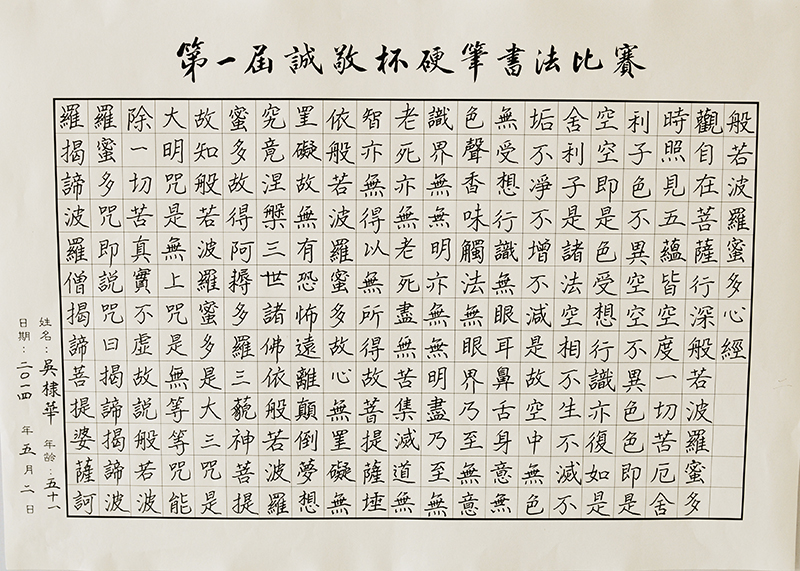 第一屆誠敬杯硬筆書法比賽
般若波羅蜜多心經
觀自在菩薩行深般若波羅蜜多
時照見五蘊皆空度一切苦厄舍
利子色不異空空不異色色即是
空空即是色受想行識亦復如是
舍利子是諸法空相不生不滅不
垢不淨不增不減是故空中無色
無受想行識無眼耳鼻舌身意無
色聲香味觸法無眼界乃至無意
識界無無明亦無無明盡乃至無
老死亦無老死盡無苦集滅道無
智亦無得以無所得故菩提薩埵
依般若波羅蜜多故心無罣礙無
罣礙故無有恐怖遠離顛倒夢想
究竟涅槃三世諸佛依般若波羅
蜜多故得阿耨多羅三藐神菩提
故知般若波羅蜜多是大三咒是
大明咒是無上咒是無等等咒能
除一切苦真實不虛故說般若波
羅蜜多咒即說咒曰揭諦揭諦波
羅揭諦波羅僧揭諦菩提婆薩訶
姓名：吳棣華 年齡：五十一
日期：二〇一四 年五月二日